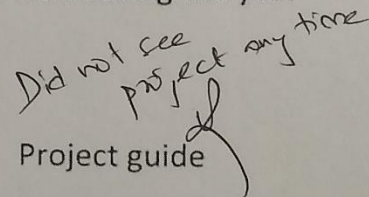 Did not see
project any time
Project guide